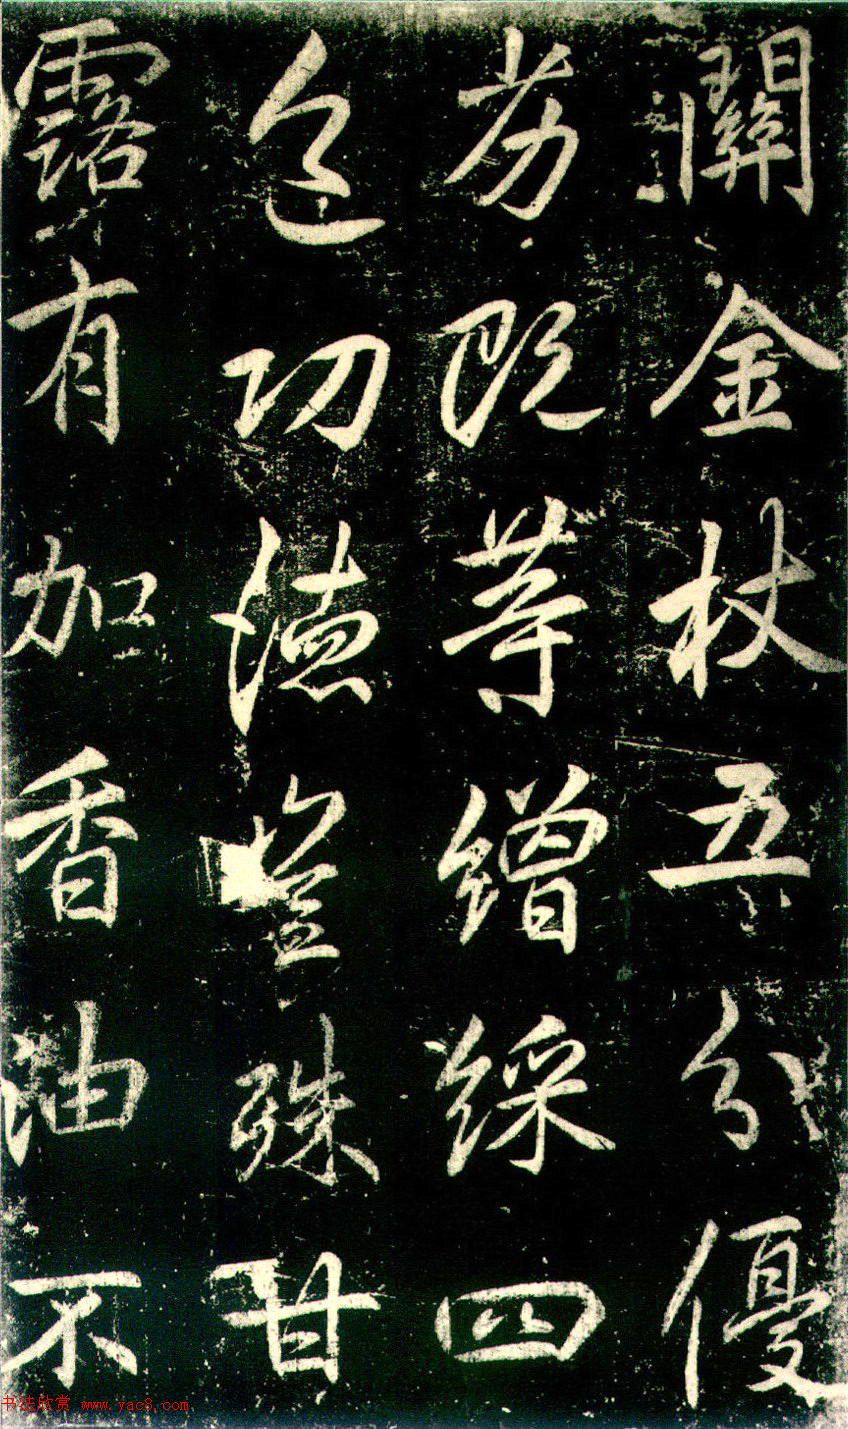 關金杖五分優
劣既等繒綵四
色功德豈殊甘
露有加香油不
书法欣赏 www.yac8.com